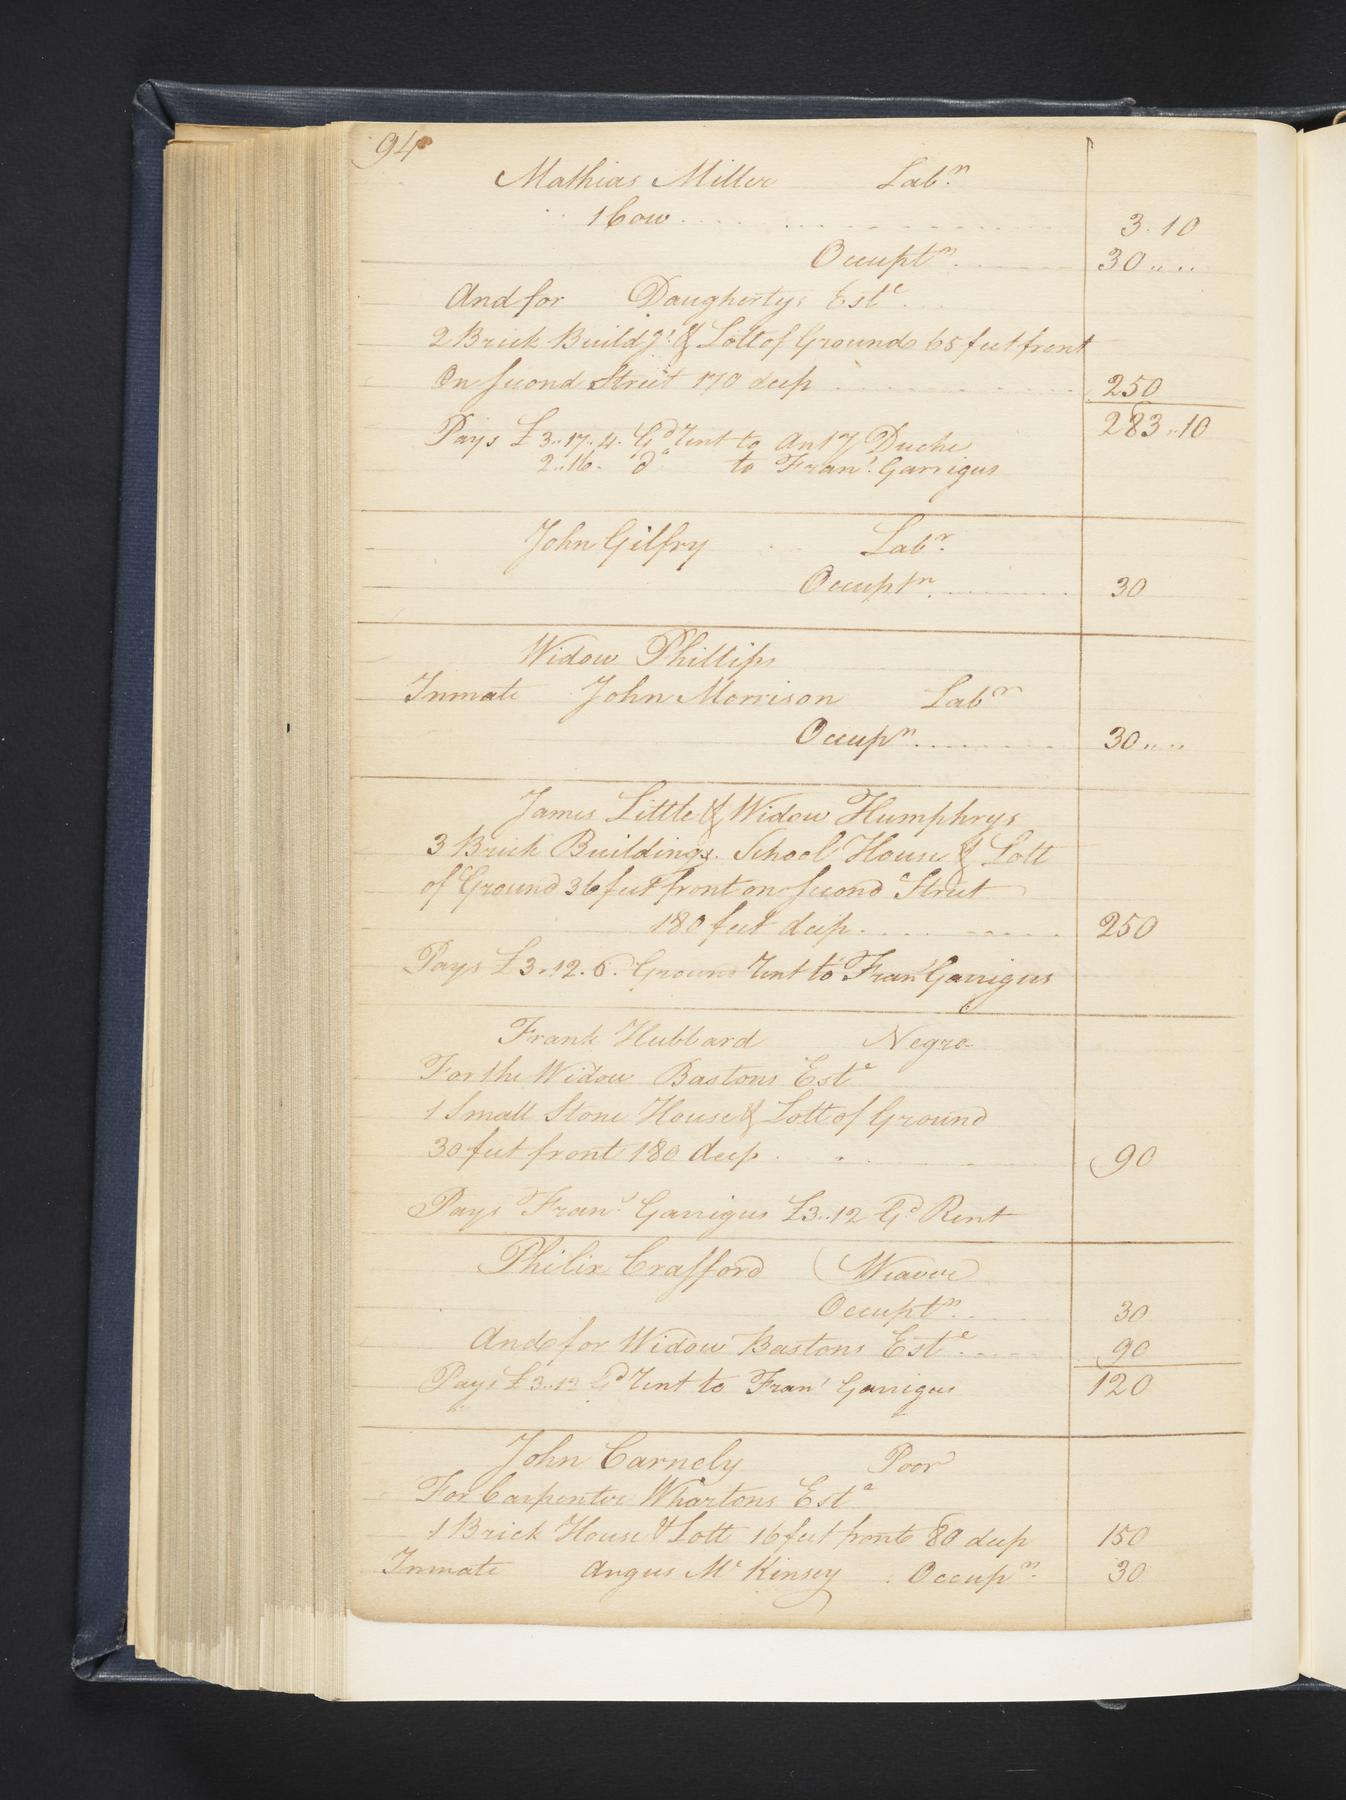 94
Mathias Miller Labr.
1 Cow 3. 10
Occuptn. 30 ,, ,,
And for Daughertys Este.
2 Brick Buildgs. & Lott of Ground 65 feet front
On Second Street 170 deep 250
283 ,, 10
Pays £3 ,, 17 ,, 4. Gd. Rent to Anty Duche
2 ,, 16. do to Frans. Garrigus
John Gilfry Labr.
Occuptn. 30
Widow Phillips
Inmate John Morrison Labr
Occupn. 30 ,, ,,
James Little & Widow Humphrys
3 Brick Buildings. School House & Lott
of Ground 36 feet front on Second Street
180 feet deep 250
Pays £3 ,, 12. 6. Ground Rent to Frans Garrigus
Frank Hubbard Negro
For the Widow Bastons Este
1 Small Stone House & Lott of Ground
30 feet front 180 deep 90
Pays Frans. Garrigus £3 ,, 12 Gd Rent
Philix Crafford Weaver
Occuptn. 30
And for Widow Bastons Este. 90
Pays £3 ,, 12 Gd Rent to Frans Garrigus 120
John Carnely Poor
For Carpenter Whartons Este
1 Brick House & Lott 16 feet front 80 deep 150
Inmate Angus Mc Kinsey Occupn. 30